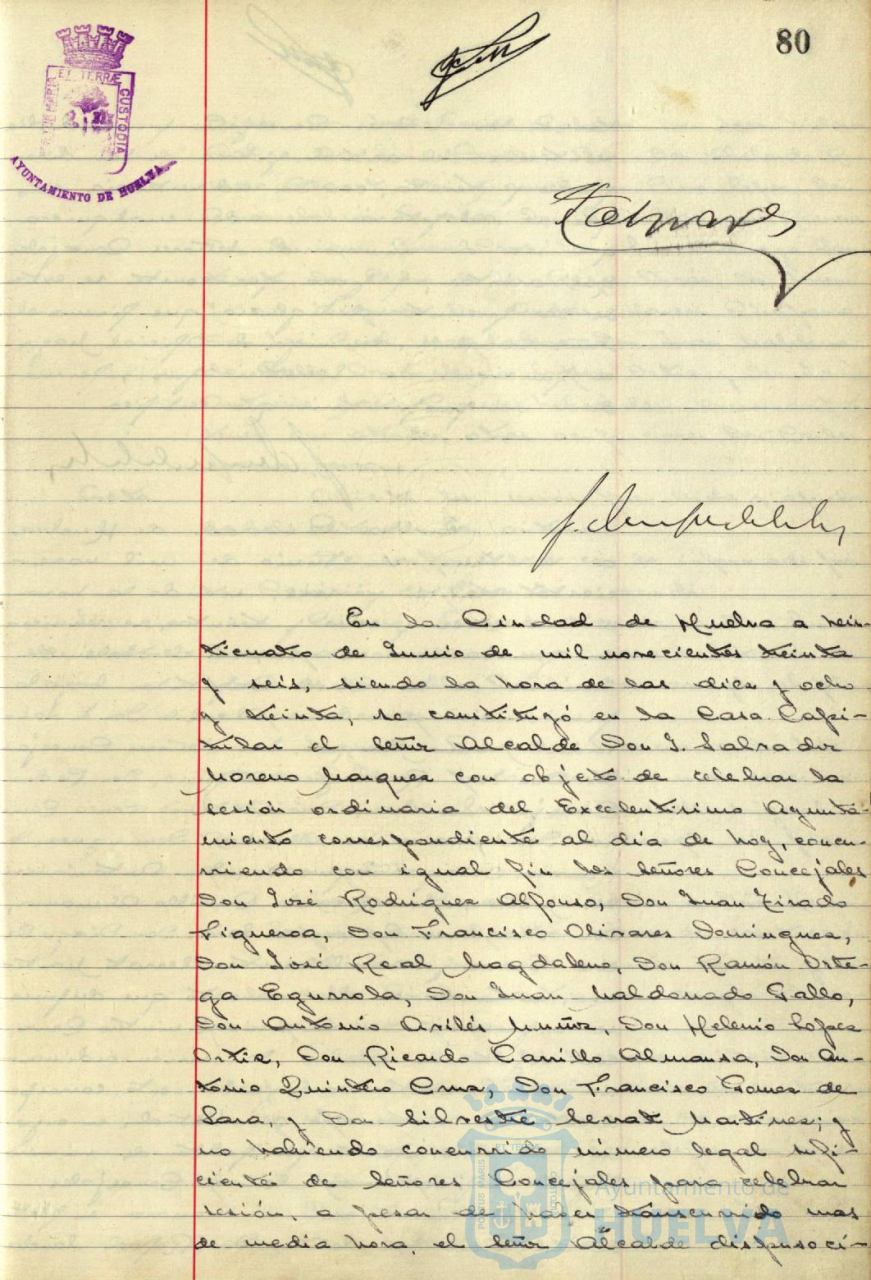 80
PORTUS MARIS ET TERRÆ CUSTODIA
AYUNTAMIENTO DE HUELVA
En la Ciudad de Huelva a vein-
ticuatro de Junio de mil novecientos treinta
y seis, siendo la hora de las diez y ocho
y treinta, se constituyó en la Casa Capi-
tular el Señor Alcalde Don J. Salvador
Moreno Marquez con objeto de celebrar la
sesión ordinaria del Excelentisimo Ayunta-
miento correspondiente al dia de hoy, concu-
rriendo con igual fin los Señores Concejales
Don José Rodriguez Alfonso, Don Juan Tirado
Figueroa, Don Francisco Olivares Dominguez,
Don José Real Magdaleno, Don Ramón Orte-
ga Egurrola, Don Juan Maldonado Gallo,
Don Antonio Avilés Muñoz, Don Helenio Lopez
Ortiz, Don Ricardo Carrillo Almansa, Don An-
tonio Quintero Cruz, Don Francisco Gomez de
Lara, y Don Silvestre Serrat Martinez; y
no habiendo concurrido número legal sufi-
ciente de Señores Concejales para celebrar
sesión, a pesar de haber transcurrido mas
de media hora, el Señor Alcalde dispuso ci-
Ayuntamiento de
HUELVA